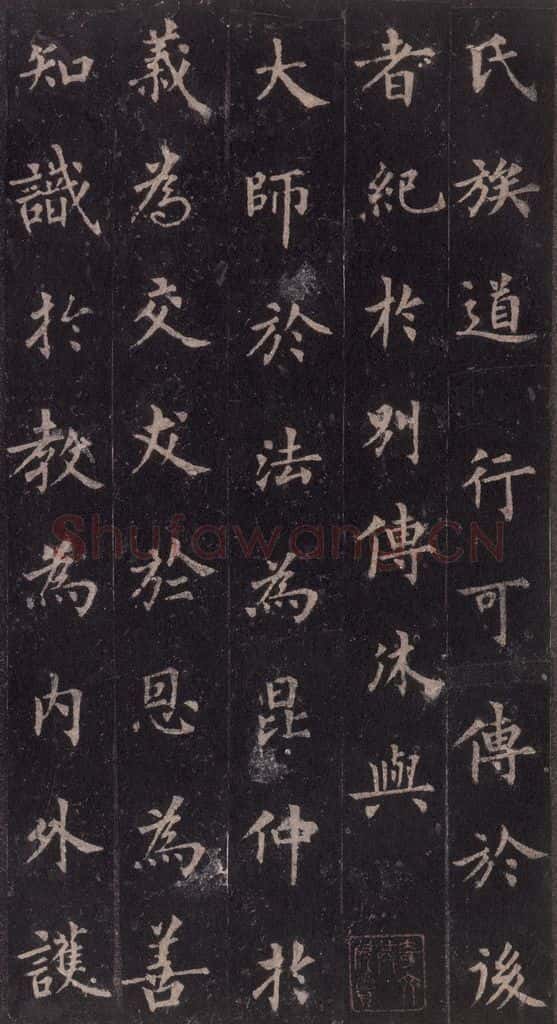 氏族道行可傳於後
者紀於別傳休與
大師於法為昆仲於
義為交友於恩為善
知識於教為內外護
Shufawang.CN